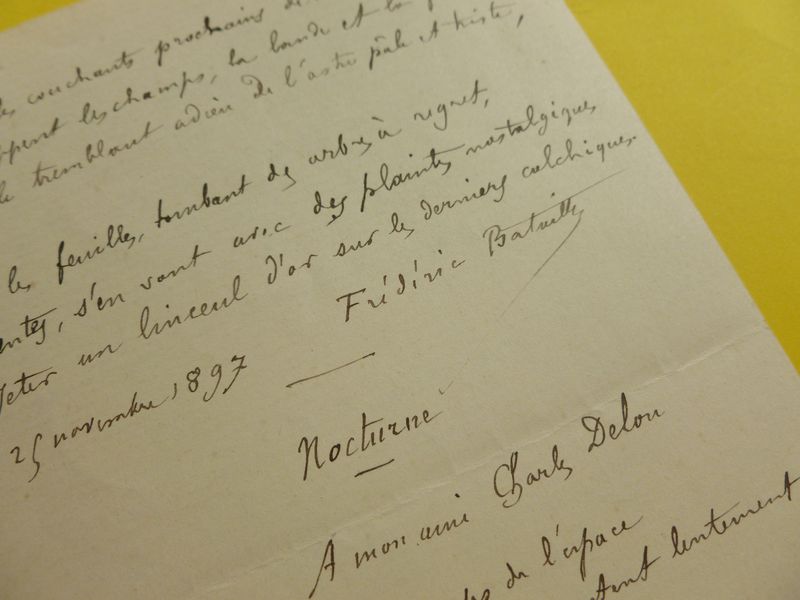 couchants prochains de
les champs, la lande et la
tremblant adieu de l'astre pâle et triste,
les feuilles, tombant des arbres à regret,
s'en vont avec des plaintes nostalgiques
un linceul d'or sur les derniers colchiques.
Frédéric Bataille
25 novembre 1897
Nocturne
A mon ami Charles Delon
de l'espace
lentement